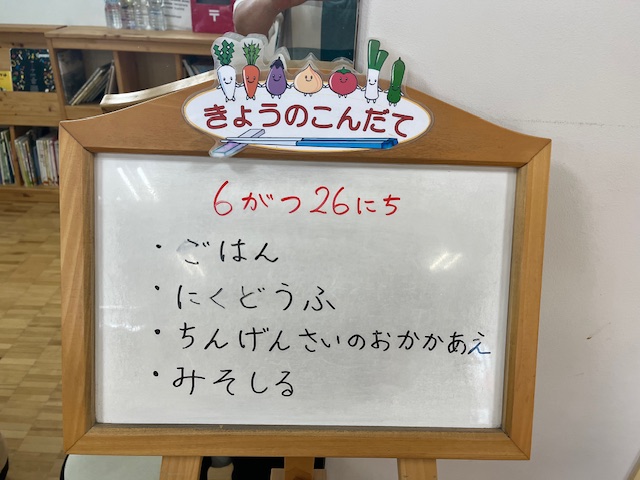 きょうのこんだて
6がつ26にち
・ごはん
・にくどうふ
・ちんげんさいのおかかあえ
・みそしる